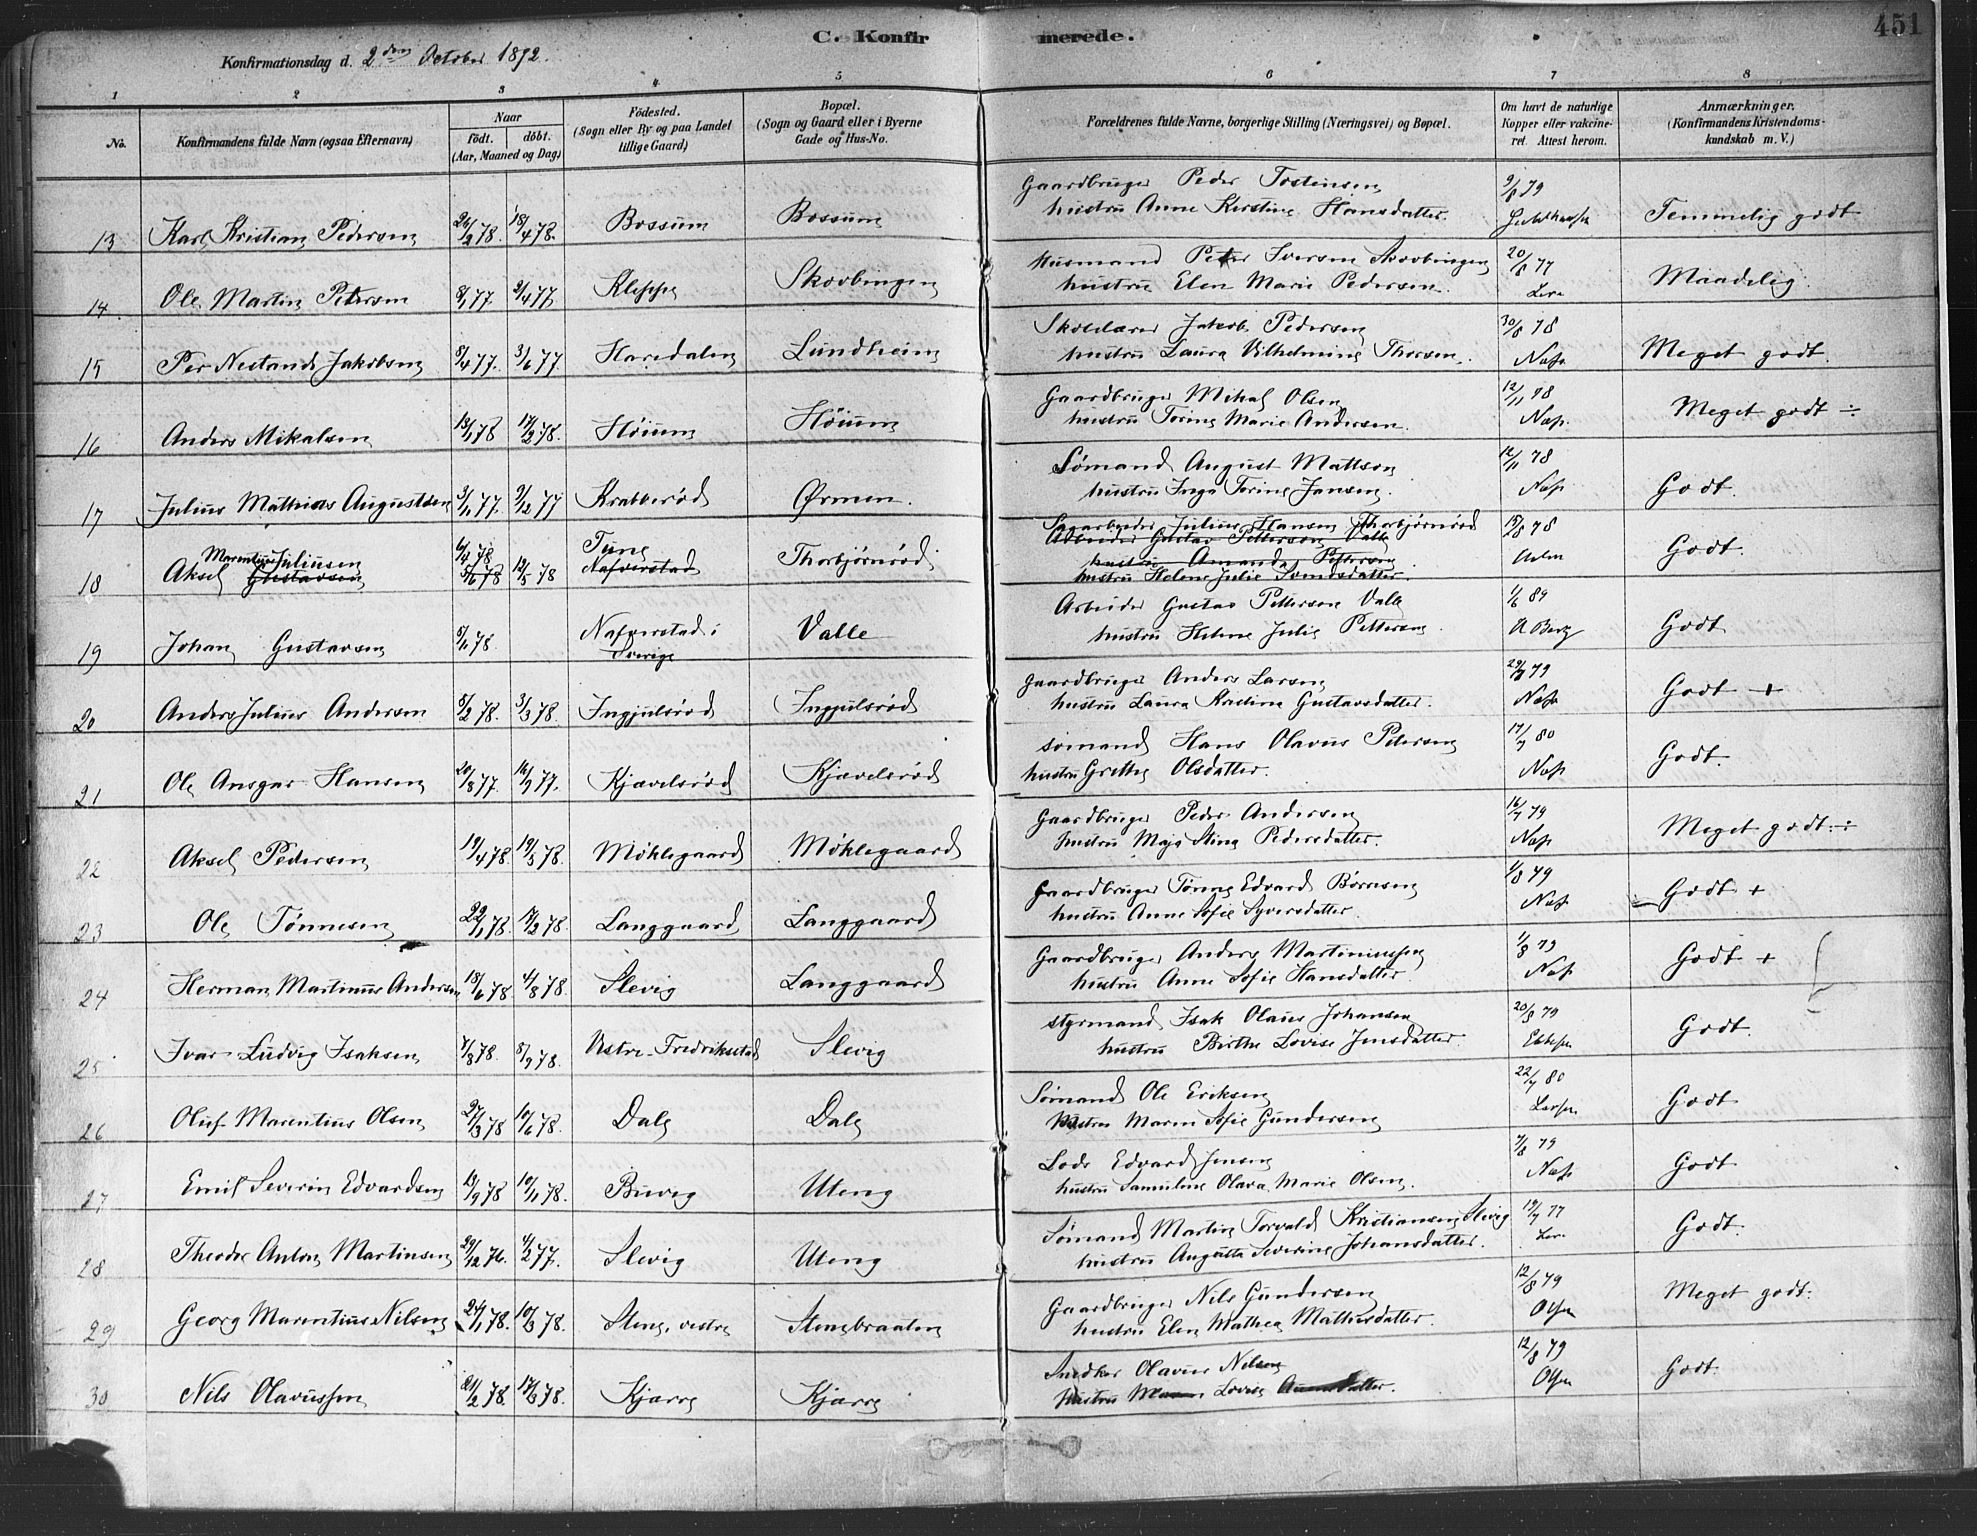 C. Konfirmerede.
451
Konfirmationsdag d. 2den October 1892.
1 2 3 4 5 6 7 8
No.
Konfirmandens fulde Navn (ogsaa Efternavn)
Naar
født. døbt.
(Aar, Maaned og Dag)
Fødested.
(Sogn eller By og paa Landet
tillige Gaard)
Bopæl.
(Sogn og Gaard eller i Byerne
Gade og Hus-No.
Forældrenes fulde Navne, borgerlige Stilling (Næringsvei) og Bopæl.
Om havt de naturlige
Kopper eller vakcine-
ret. Attest herom.
Anmærkninger.
(Konfirmandens Kristendoms-
kundskab m. V.)
13 Karl Kristian Pedersen 26/2 78. 18/4 78. Bossum Bossum Gaardbruger Peder Tostensen 9/8 79
hustru Anne Kirstine Hansdatter. Temmelig godt
14. Ole Martin Petersen 8/1 77. 2/4 77. Kleppe Skovbingen Husmand Peter Iversen Skovbingen 20/8 77
hustru Elen Marie Pedersen. Maadelig.
15 Per Nestande Jakobsen 8/4 77. 3/6 77. Haredalen Lundheim Skolelærer Jakob Pedersen 30/8 78
hustru Laura Vilhelmine Thorsen. Næss Meget godt.
16 Anders Mikalsen 13/1 78 17/2 78. Høium Høium Gaardbruger Mikal Olsen 12/11 78
hustru Torine Marie Andersen. Næss. Meget godt ÷
17 Julius Mathias Augustsen 3/11 77. 9/12 77 Krabberød Ørmen. Sømand August Mattson 12/11 78
hustru Inga Torine Jansen. Næss Godt.
18 Aksel Marentius Juliusen Gustavsen 6/4 78 5/6 78 12/5 78 Tune Nafverstad Thorbjørnrød Sagarbeider Julius Hansen Thorbjørnrød 15/8 78
Arbeider Gustav Petterson Valle
hustru Amanda Petterson
hustru Helene Julie Svendsdatter. Godt.
19 Johan Gustavsen 5/11 78. Nafverstad i Sverige Valle Arbeider Gustav Petterson Valle 1/6 89
hustru Helene Julie Petterson. A Berg Godt
20 Anders Julius Andersen 5/2 78. 3/3 78. Ingjulsrød Ingjulsrød Gaardbruger Anders Larsen 29/7 79
hustru Laura Kristine Gustavsdatter. Næss Godt +
21 Ole Ansgar Hansen 20/8 77. 16/9 77. Kjævelsrød Kjævelsrød sømand Hans Olavus Petersen 17/7 80
hustru Grethe Olsdatter. Næss Godt.
22 Aksel Pedersen 19/4 78. 19/5 78. Møklegaard Møklegaard Gaardbruger Peder Andersen 16/7 79
hustru Maja Stina Pedersdatter. Næss Meget godt ÷
23 Ole Tønnesen 22/1 78. 17/2 78. Langgaard Langgaard Gaardbruger Tønnes Edvard Børresen 1/8 79
hustru Anne Sofie Syversdatter. Næss Godt +
24 Herman Martinus Andersen 18/6 78. 4/8 78. Slevig Langgaard Gaardbruger Anders Martiniussen 1/8 79
hustru Anne Sofie Hansdatter. Næss Godt +
25 Ivar Ludvig Isaksen 7/8 78. 8/9 78. Vestre-Fredrikstad Slevig styrmand Isak Olaus Johansen 20/8 79
hustru Birthe Lovise Jensdatter. Godt
26 Oluf Marentius Olsen 27/3 78 10/6 78. Dale Dale Sømand Ole Eriksen 22/7 80
hustru Maren Sofie Gundersen Larsen Godt
27 Emil Severin Edvardsen 13/9 78 10/11 78. Buvig Uteng Lods Edvard Jensen 7/8 79
hustru Samuline Olava Marie Olsen. Næss Godt
28 Theodor Anton Martinsen 29/12 76. 4/2 77. Slevig Uteng Sømand Martin Torvald Kristiansen Slevig 19/7 77
hustru Augusta Severine Johansdatter. Godt.
29 Georg Marentius Nilsen 24/1 78. 10/3 78. Steng, vestre Stenebraaten Gaardbruger Nils Gundersen 12/8 79
hustru Elen Mathea Mathisdatter. Olsen Meget godt.
30 Nils Olavussen 21/2 78. 17/3 78. Kjærre Kjærre Snedker Olavus Nilsen 12/8 79
hustru Lovise Olsen Godt.